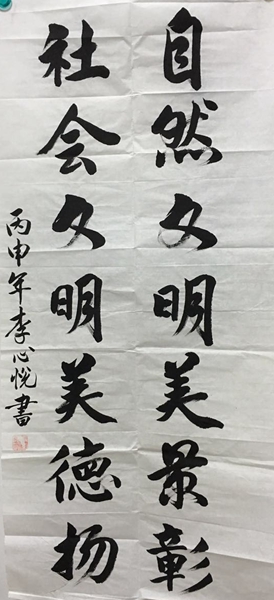 自然文明美景彰
社会文明美德扬
丙申年李心悦書